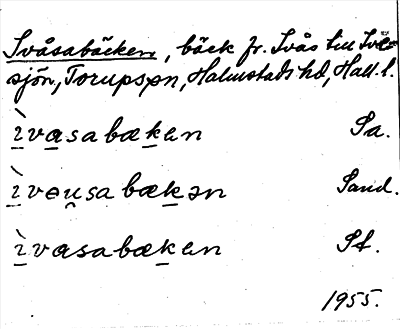 Ivåsabäcken, bäck fr. Ivås till Ivås-
sjön, Torups sn, Halmstads hd, Hall. l.
ìvasabækan Sa.
ìveusabækən Sand.
ìvasabækan St.
1955.